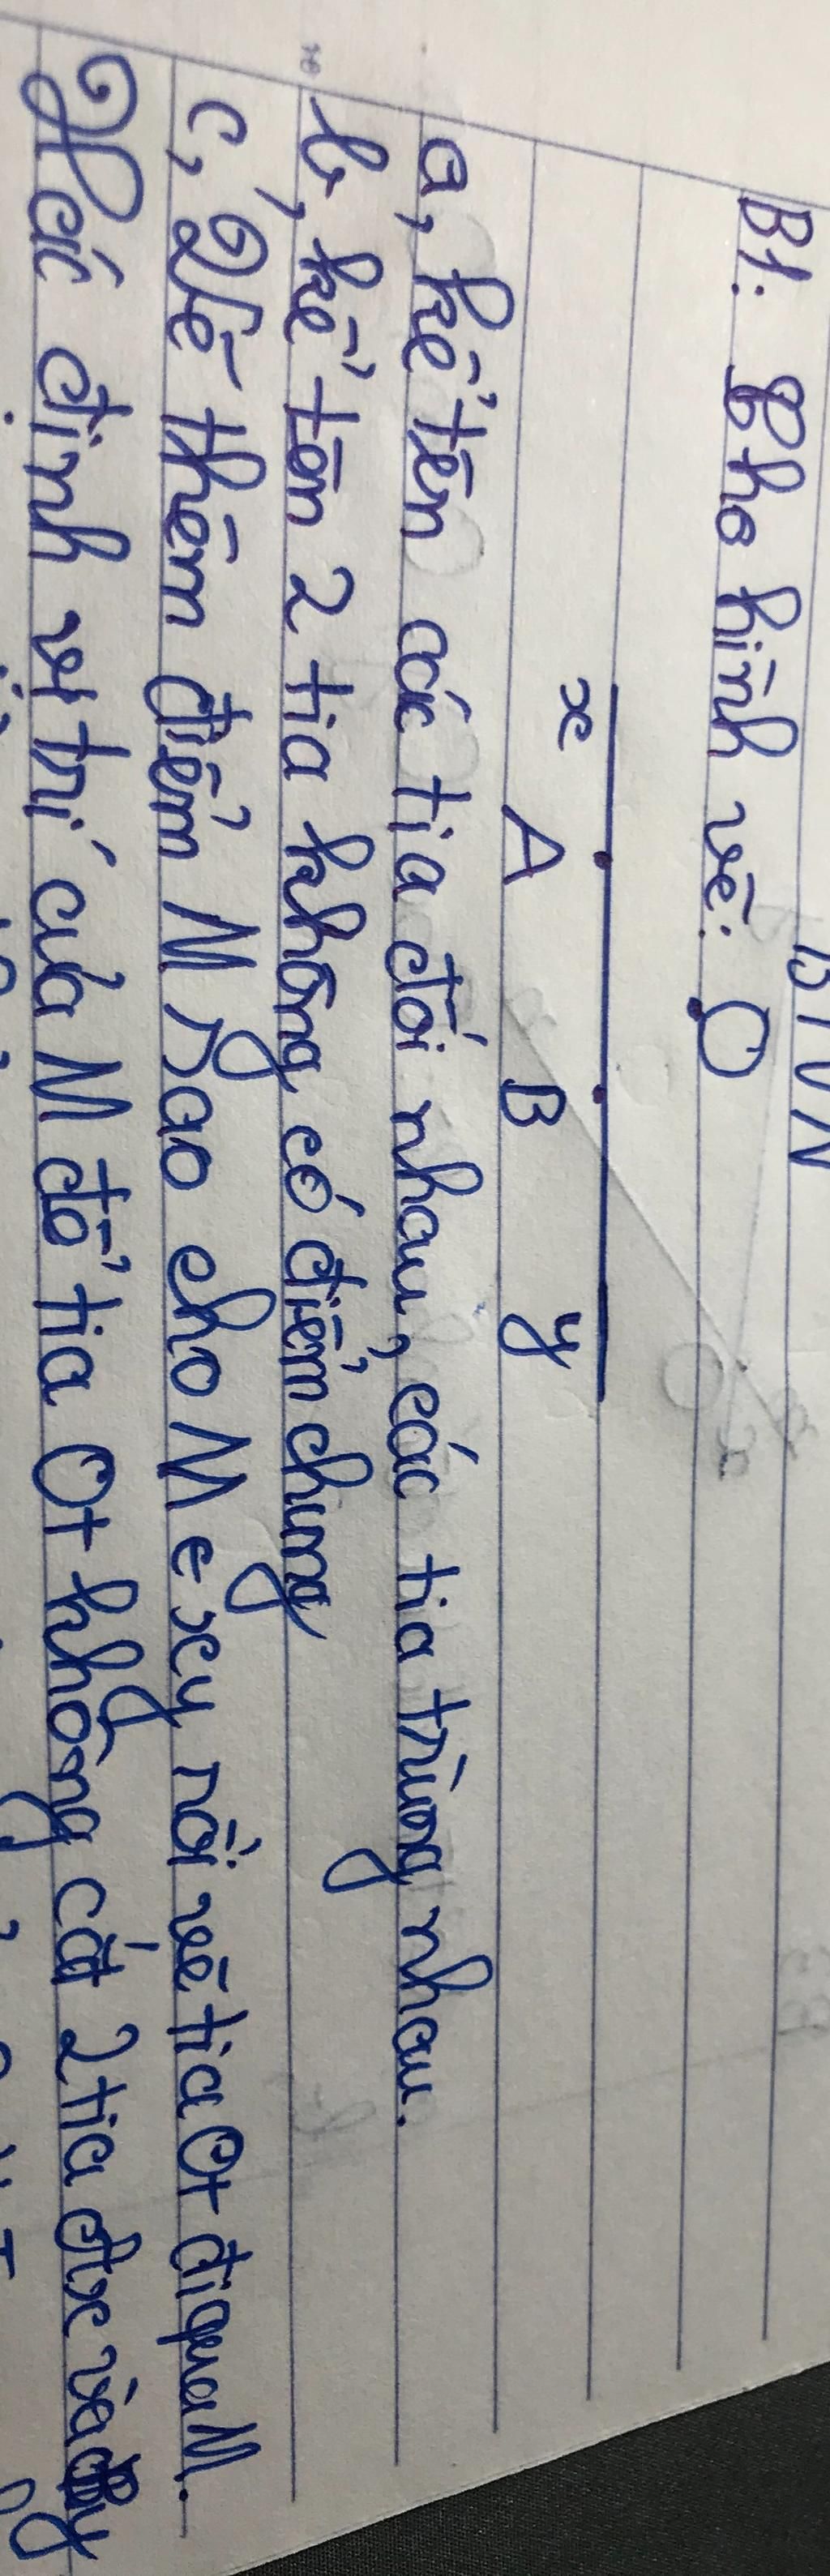 BTVN
B1: Cho hình vẽ: O
x A B y
a, kể tên các tia đối nhau, các tia trùng nhau.
b, kể tên 2 tia không có điểm chung
c, Vẽ thêm điểm M sao cho M ∈ xy rồi vẽ tia Ot đi qua M.
Xác định vị trí của M để tia Ot không cắt 2 tia Ax và By